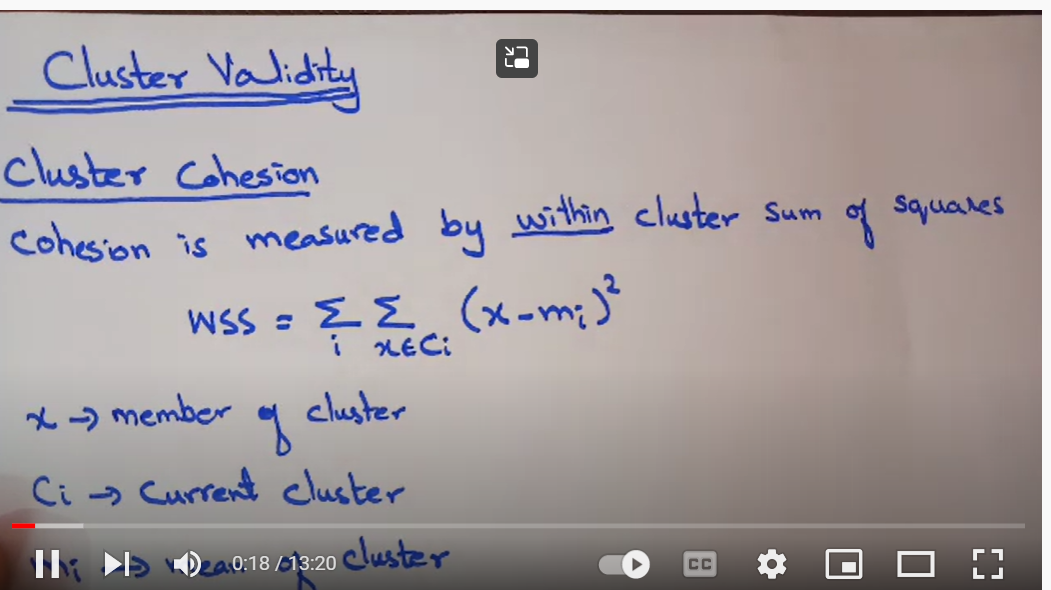 Cluster Validity
Cluster Cohesion
Cohesion is measured by within cluster sum of squares
WSS = Σ Σ (x - mi)²
i x∈Ci
x → member of cluster
Ci → Current cluster
mi → mean of cluster
0:18 / 13:20
CC